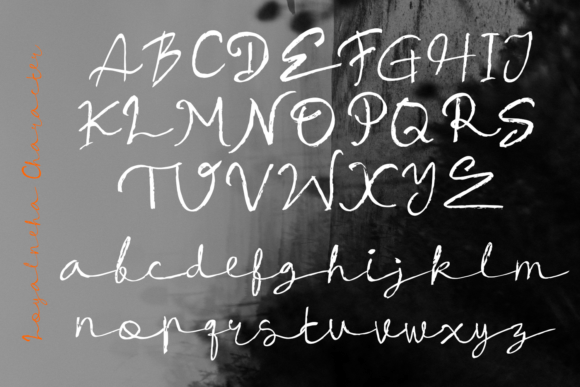 Character
ABCDEFGHIJ
KLMNOPQRS
TUVWXYZ
abcdefghijklm
nopqrstuvwxyz